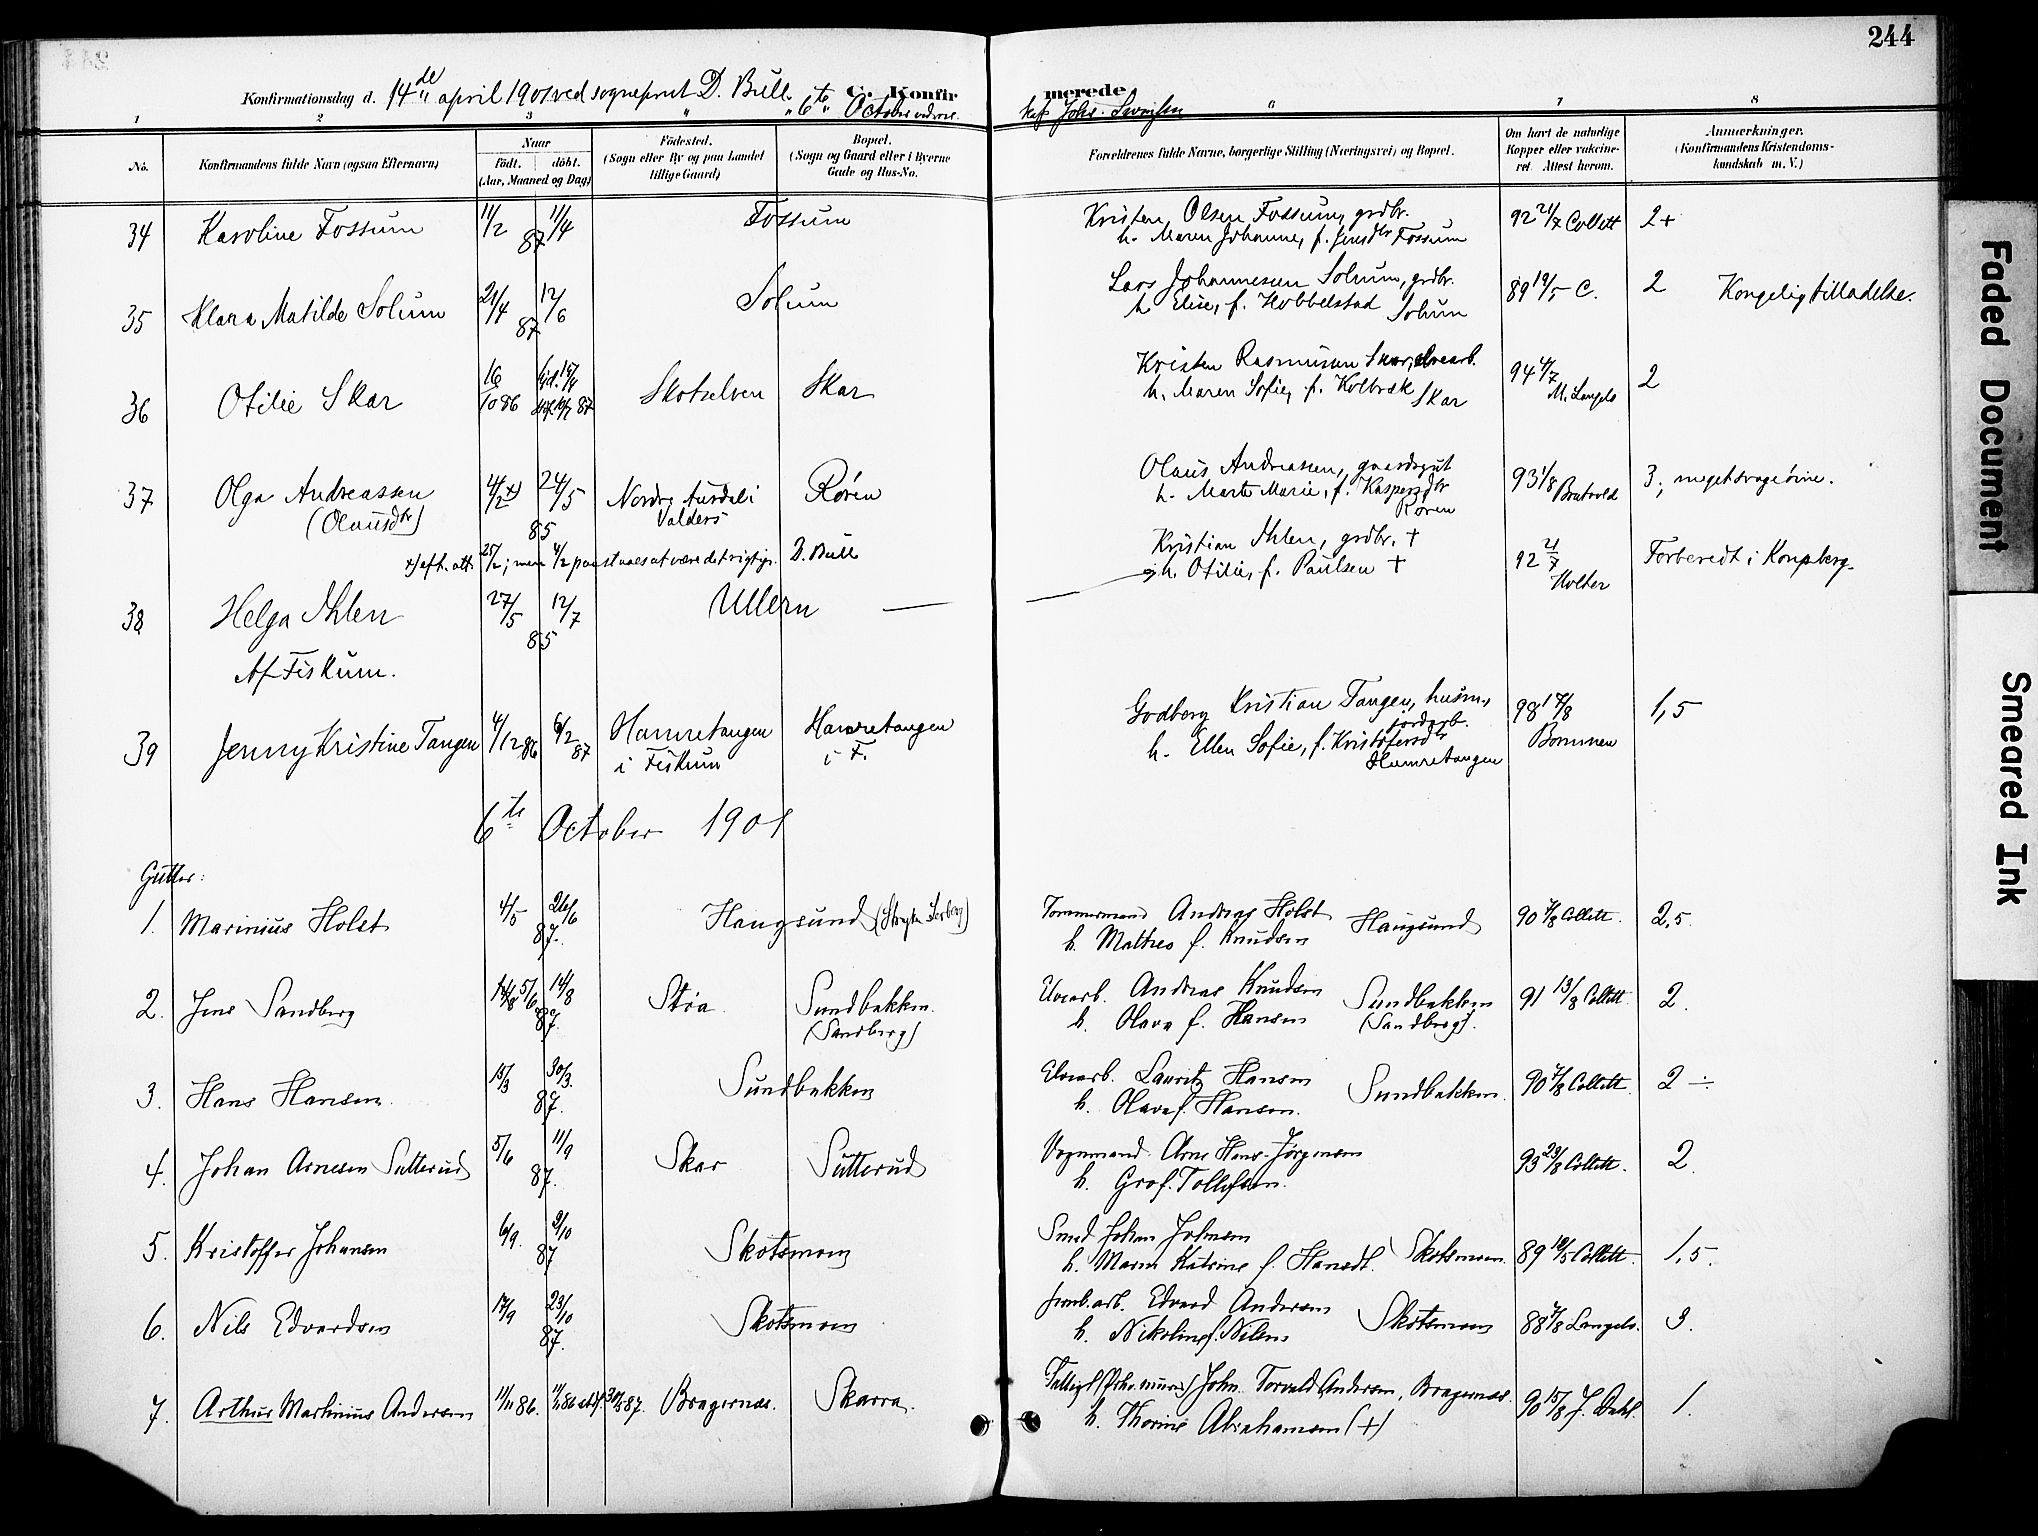 244
Konfirmationsdag d. 14de april 1901 ved sogneprest D. Bull.
C. Konfirmerede
"6te" October ved res. kap. Johs.
1 2 3 4 6 7 8
No.
Konfirmandens fulde Navn (ogsaa Efternavn)
Naar
født. døbt.
(Aar, Maaned og Dag)
Fødested.
(Sogn eller By og paa Landet
tillige Gaard)
Bopæl.
(Sogn og Gaard eller i Byerne
Gade og Hus-No.
Forældrenes fulde Navne, borgerlige Stilling (Næringsvei) og Bopæl.
Om havt de naturlige
Kopper eller vaccine-
ret. Attest herom.
Anmærkninger.
(Konfirmandens Kristendoms-
kundskab m. V.)
34 Karoline Fossum 11/2 11/4 87 Fossum Kristen Olsen Fossum, grdbr. 92 21/7 Collett 2+
h. Maren Johanne, f. Jensdtr Fossum
35 Klara Matilde Solum 21/4 12/6 87 Solum Lars Johannesen Solum, grdbr. 89 19/5 C. 2 Kongelig tilladelse.
h. Elise, f. Hobbelstad Solum
36 Otilie Skar 16/10 86 Skotselven Skar Kristen Rasmussen Skar, elvearb. 94 4/7 M. Langels 2
h. Maren Sofie, f. Kolbræk Skar
37 Olga Andreassen 4/2 x) 24/5 85 Nordre Aurdal i Valders Røren Olaus Andreassen, 93 1/8 3; meget svage evne.
(Olausdtr) h. Marte Marie, f. Kaspersdtr Røren
x) efter att. 25/2; men 4/2 paastaaes at være det rigtige. D. Bull
38 Helga Ihlen 27/5 12/7 85 Ullern — Kristian Ihlen, grdbr. + 92 21/7 Holter Forberedt i Kongsberg.
h. Otilie, f. Paulsen +
Af Fiskum.
39 Jenny Kristine Tangen 4/12 86 6/2 87 Hamretangen i Fiskum Hamretangen i F. Godberg Kristian Tangen, husm., jordarb. 98 17/8 Bommen 1,5
h. Ellen Sofie, f. Kristofersdtr Hamretangen
6te October 1901
Gutter:
1. Marinius Holst 4/5 26/6 87. Haugsund Tømmermand Andreas Holst Haugsund 90 7/8 Collett. 2,5.
h. Mathea f. Knudsen
2. Jens Sandberg 5/6 14/8 87. Støa Sundbakken (Sandberg) Elvearb. Andreas Knudsen Sundbakken (Sandberg). 91 13/8 Collett. 2.
h. Olava f. Hansen
3. Hans Hansen 15/3 30/3. 87. Sundbakken Elvearb. Lauritz Hansen Sundbakken. 90 7/8 Collett. 2 ÷
h. Olava f. Hansen.
4. Johan Arnesen Sutterud 5/6 11/9 87. Skar Sutterud Vognmand Arne Hans Jørgensen 93 23/8 Collett. 2.
h. Gro f. Tollefsen.
5. Kristoffer Johansen 6/9. 9/10 87 Skotsmoen Smed Johan Johnsen Skotsmoen. 89 19/5 Collett. 1,5.
h. Maren Katrine f. Hansdt.
6. Nils Edvardsen 17/9 23/10 87. Skotsmoen arb. Edvard Andersen Skotsmoen 88 7/8 Langels. 3.
h. Nikoline f. Nilsen
7. Arthur Martinius Andersen 11/11 86. Bragernæs. Skarra. John Torvald Andersen, Bragernæs. 90 15/8 J. Dahl. 1.
h. Thorine Abrahamsen (+)
Faded Document
Smeared Ink